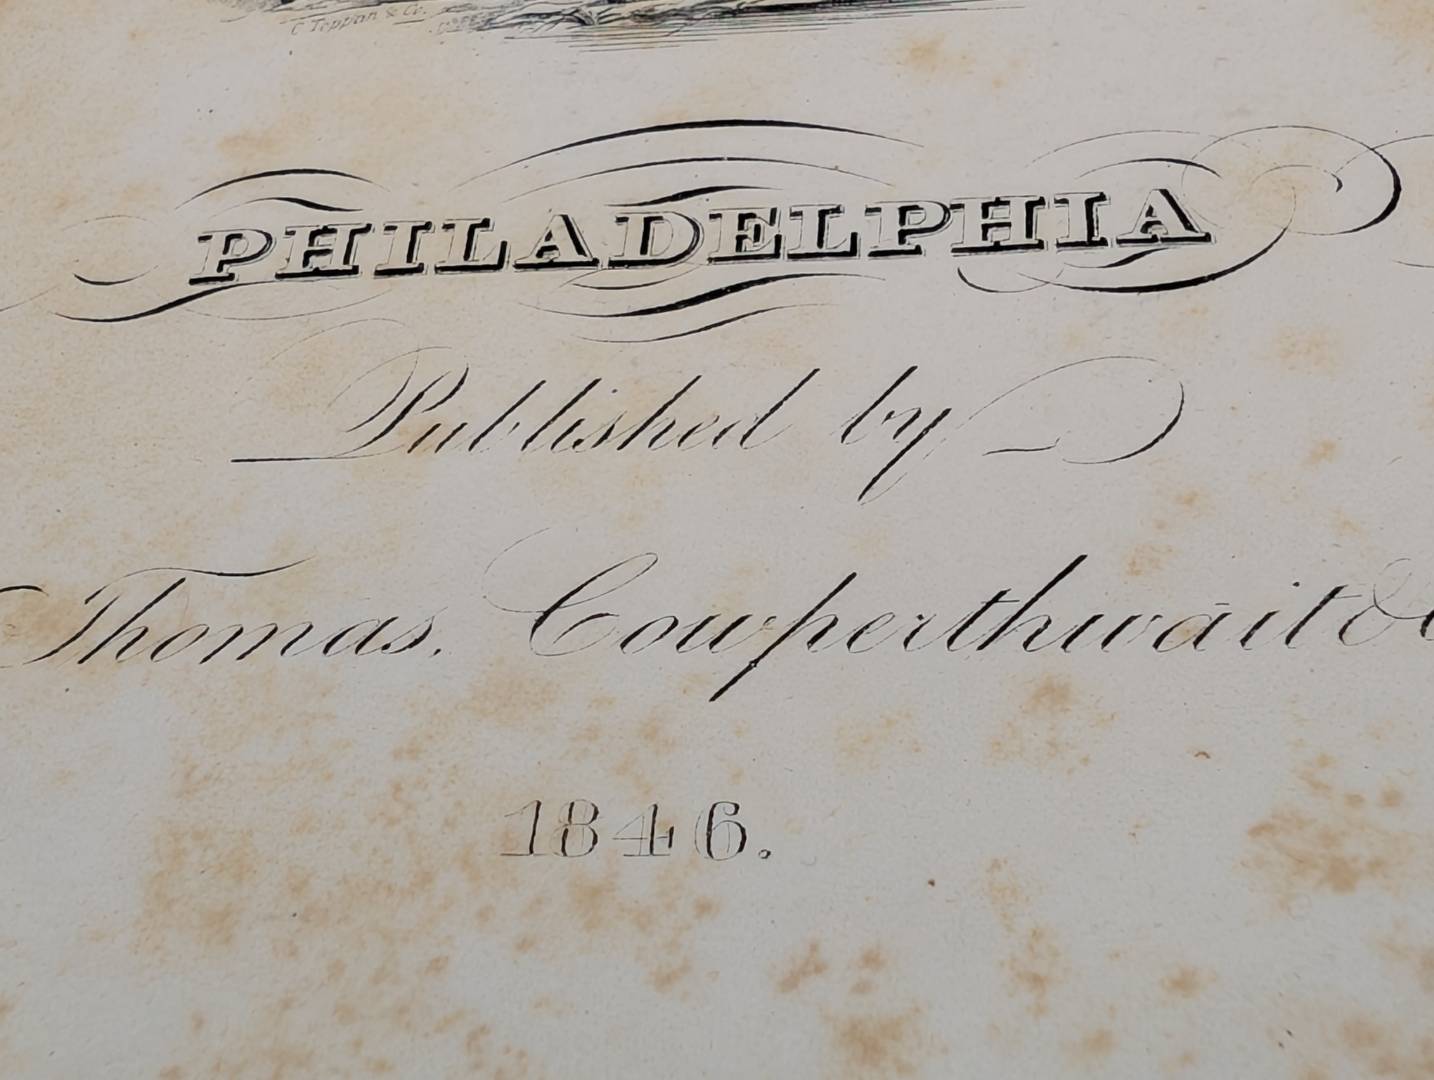 C Toppan & Co.
PHILADELPHIA
Published by
Thomas, Cowperthwait &
1846.